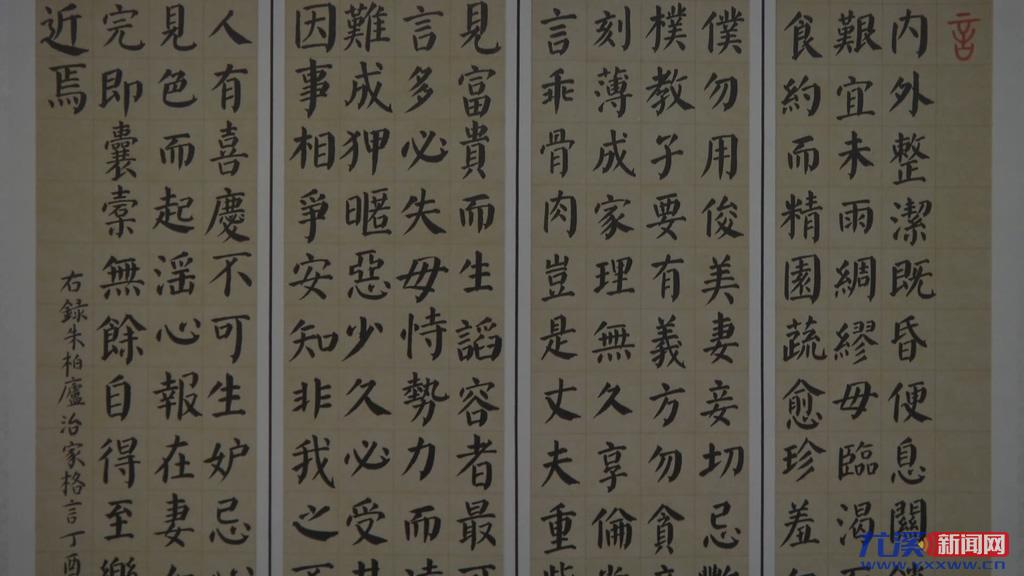 言
内外整潔既昏便息關
艱宜未雨綢繆毋臨渴
飠約而精園蔬愈珍羞
僕勿用俊美妻妾切忌
樸教子要有義方勿貪
刻薄成家理無久享倫
言乖骨肉豈是丈夫重
見富貴而生諂容者最
言多必失毋恃勢力而
難成狎暱惡少久必受
因事相爭安知非我之
人有喜慶不可生妒忌
見色而起淫心報在妻
完即囊橐無餘自得至樂
近焉
右錄朱柏廬治家格言丁酉
尤溪新闻网
www.yxxww.cn